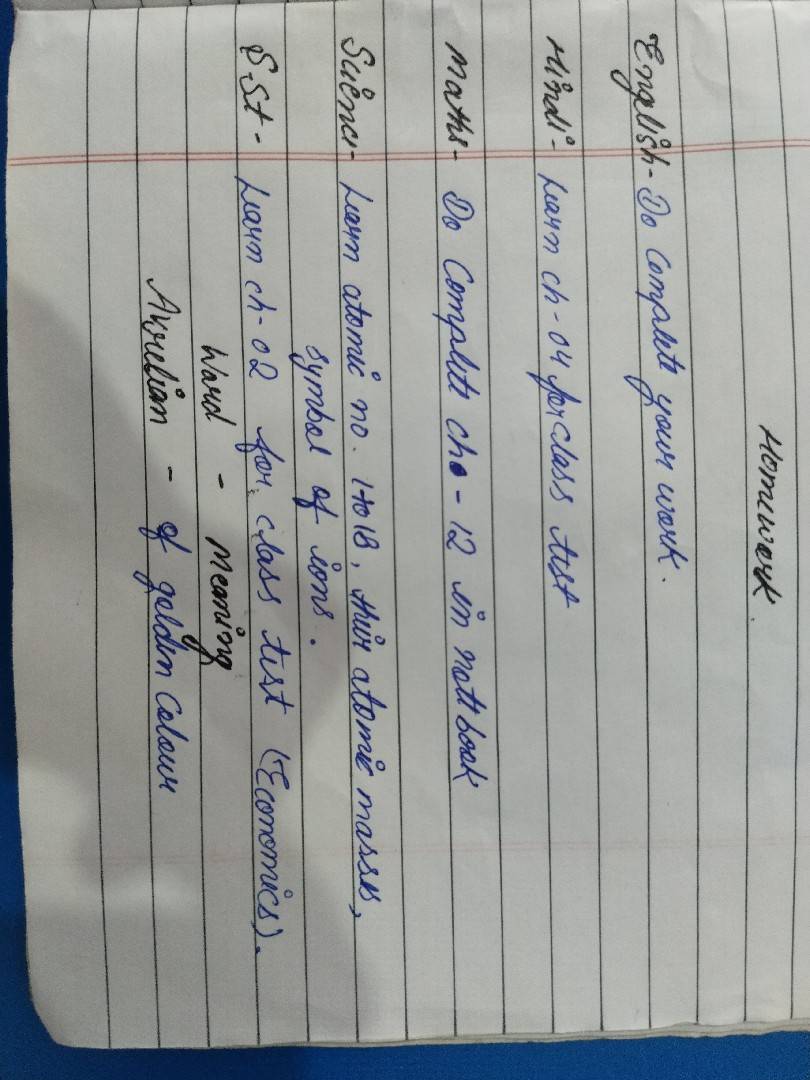 Homework.
English - Do Complete your work.
Hindi - Learn ch - 04 for class test
Maths - Do Complete ch - 12 in nott book
Science - Learn atomic no. 1 to 18, their atomic masses,
symbol of ions.
S.St - Learn ch - 02 for class test (Economics).
Word - Meaning
Aurelian - of golden Colour